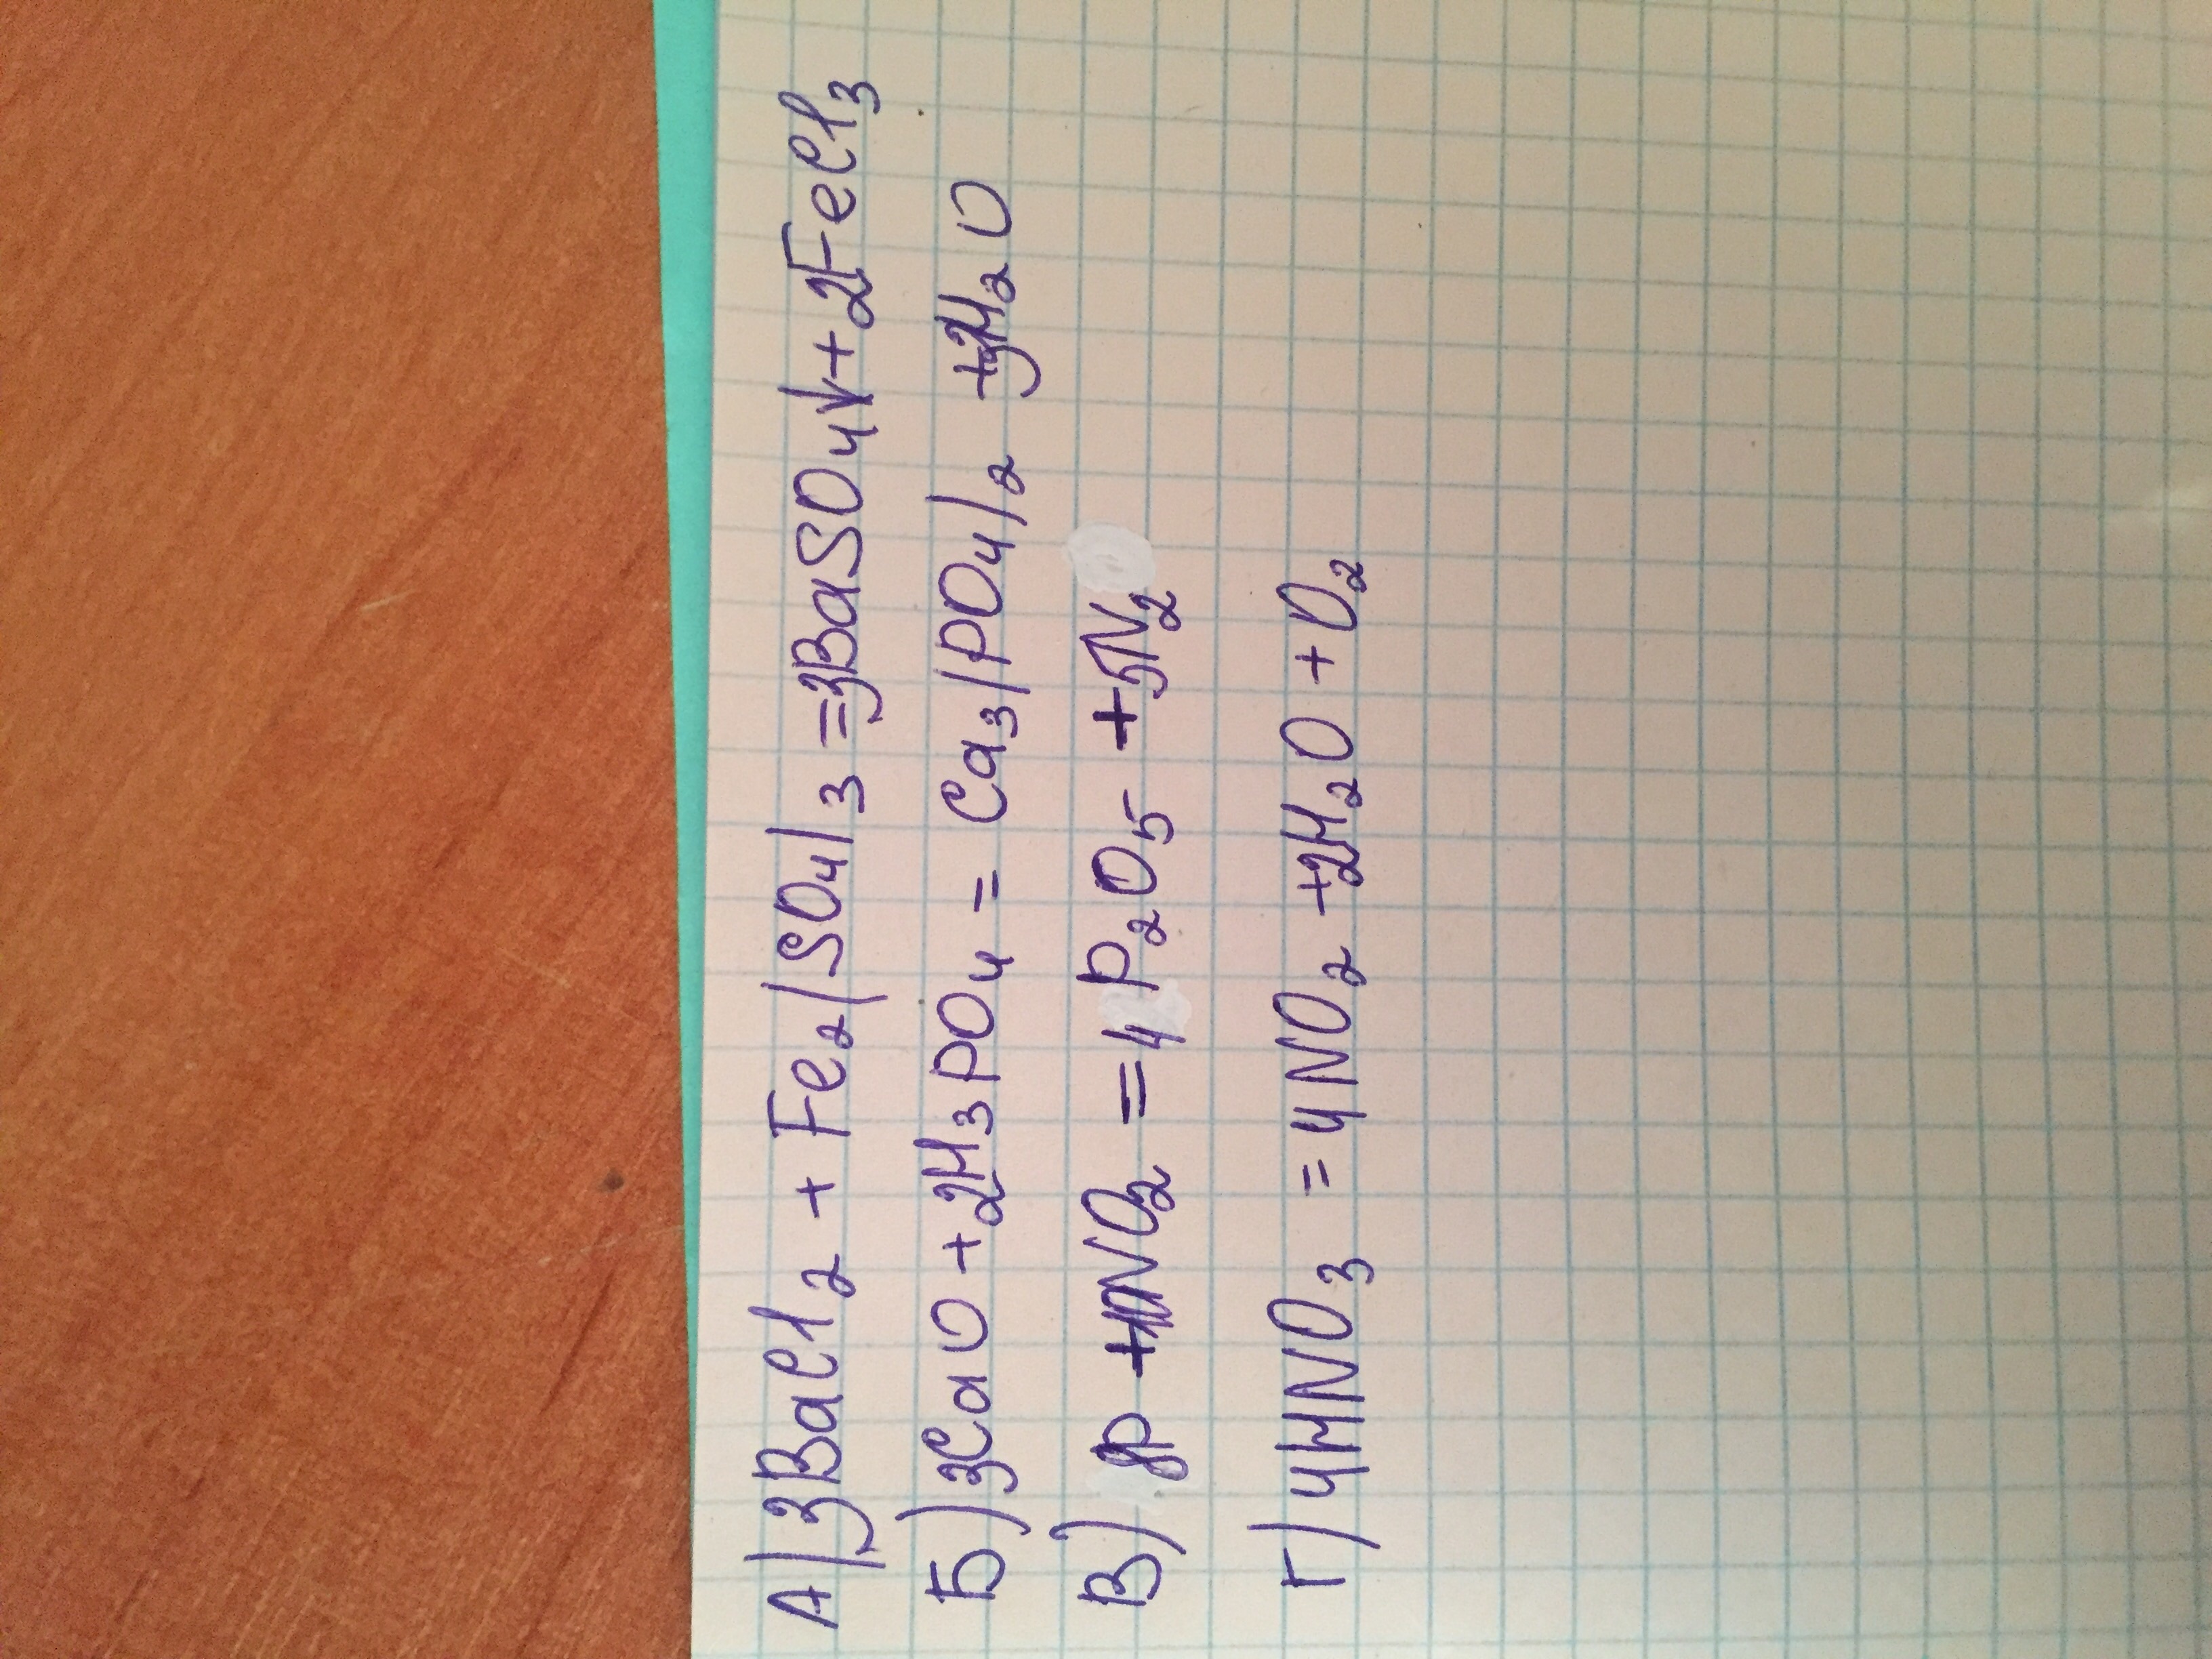 А) 3BaCl₂ + Fe₂(SO₄)₃ = 3BaSO₄↓ + 2FeCl₃
Б) 3CaO + 2H₃PO₄ = Ca₃(PO₄)₂ + 3H₂O
В) 8P + 10NO₂ = 4P₂O₅ + 5N₂
Г) 4HNO₃ = 4NO₂ + 2H₂O + O₂